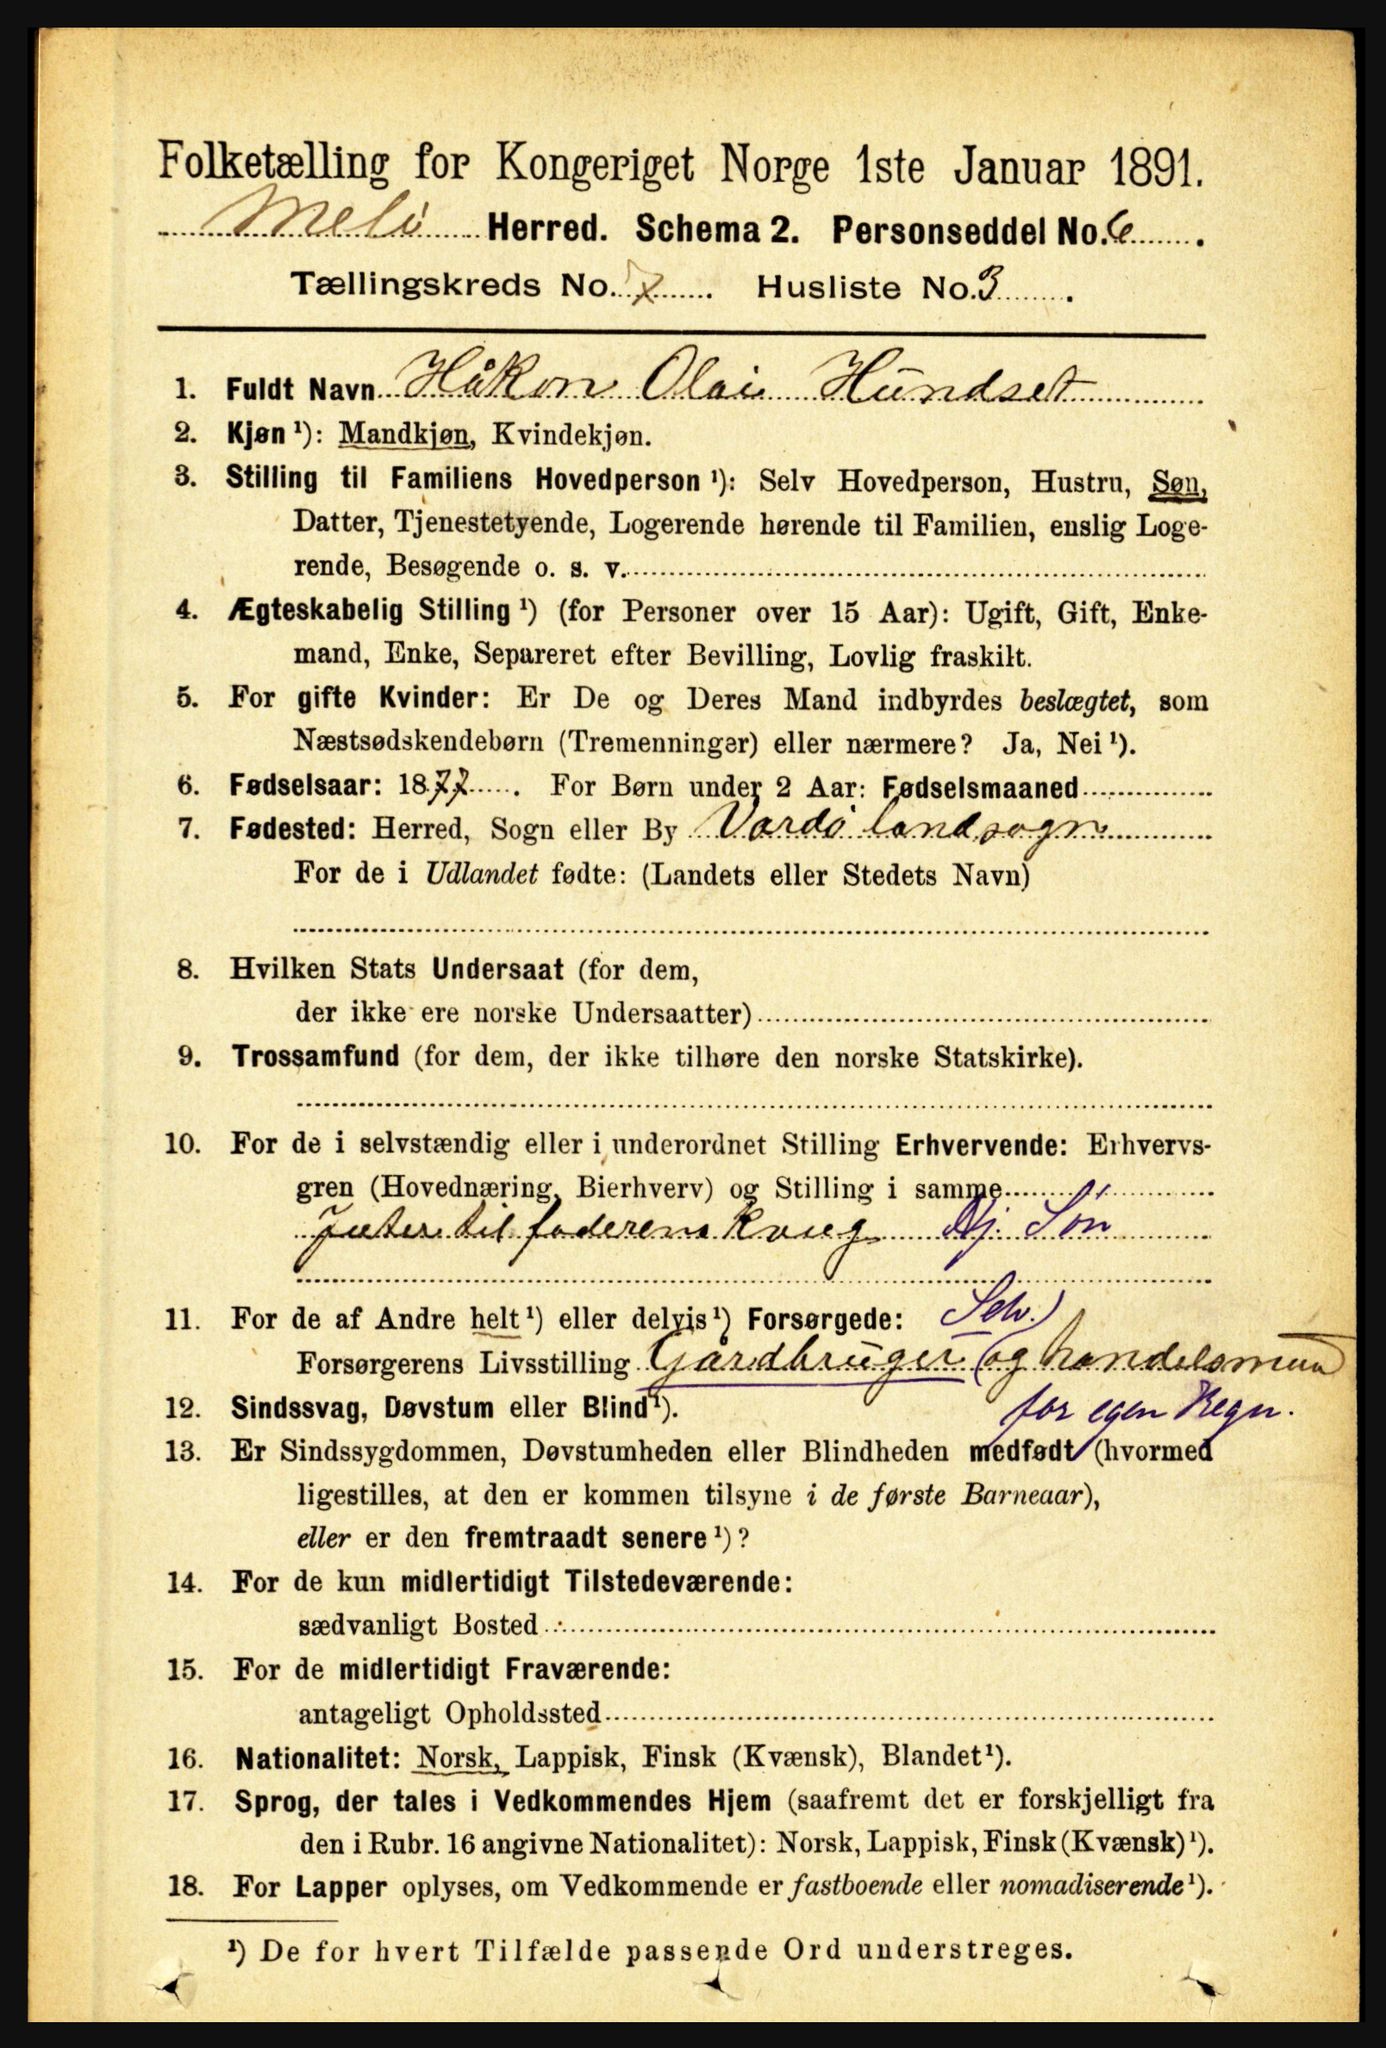 Folketælling for Kongeriget Norge 1ste Januar 1891.
Melö Herred. Schema 2. Personseddel No. 6.
Tællingskreds No. 7. Husliste No. 3.
1. Fuldt Navn Håkon Olai Hundset
2. Kjøn ¹): Mandkjøn, Kvindekjøn.
3. Stilling til Familiens Hovedperson ¹): Selv Hovedperson, Hustru, Søn,
Datter, Tjenestetyende, Logerende hørende til Familien, enslig Loge-
rende, Besøgende o. s. v.
4. Ægteskabelig Stilling ¹) (for Personer over 15 Aar): Ugift, Gift, Enke-
mand, Enke, Separeret efter Bevilling, Lovlig fraskilt.
5. For gifte Kvinder: Er De og Deres Mand indbyrdes beslægtet, som
Næstsødskendebørn (Tremenninger) eller nærmere? Ja, Nei ¹).
6. Fødselsaar: 1877. For Børn under 2 Aar: Fødselsmaaned
7. Fødested: Herred, Sogn eller By Vardö landsogn
For de i Udlandet fødte: (Landets eller Stedets Navn)
8. Hvilken Stats Undersaat (for dem,
der ikke ere norske Undersaatter)
9. Trossamfund (for dem, der ikke tilhøre den norske Statskirke).
10. For de i selvstændig eller i underordnet Stilling Erhvervende: Erhvervs-
gren (Hovednæring, Bierhverv) og Stilling i samme
til faderens Hj. Sön
11. For de af Andre helt ¹) eller delvis ¹) Forsørgede: Selv.
Forsørgerens Livsstilling Gårdbruger (og handelsmand
12. Sindssvag, Døvstum eller Blind ¹). for egen Regn.
13. Er Sindssygdommen, Døvstumheden eller Blindheden medfødt (hvormed
ligestilles, at den er kommen tilsyne i de første Barneaar),
eller er den fremtraadt senere ¹)?
14. For de kun midlertidigt Tilstedeværende:
sædvanligt Bosted
15. For de midlertidigt Fraværende:
antageligt Opholdssted
16. Nationalitet: Norsk, Lappisk, Finsk (Kvænsk), Blandet ¹).
17. Sprog, der tales i Vedkommendes Hjem (saafremt det er forskjelligt fra
den i Rubr. 16 angivne Nationalitet): Norsk, Lappisk, Finsk (Kvænsk) ¹).
18. For Lapper oplyses, om Vedkommende er fastboende eller nomadiserende ¹).
¹) De for hvert Tilfælde passende Ord understreges.